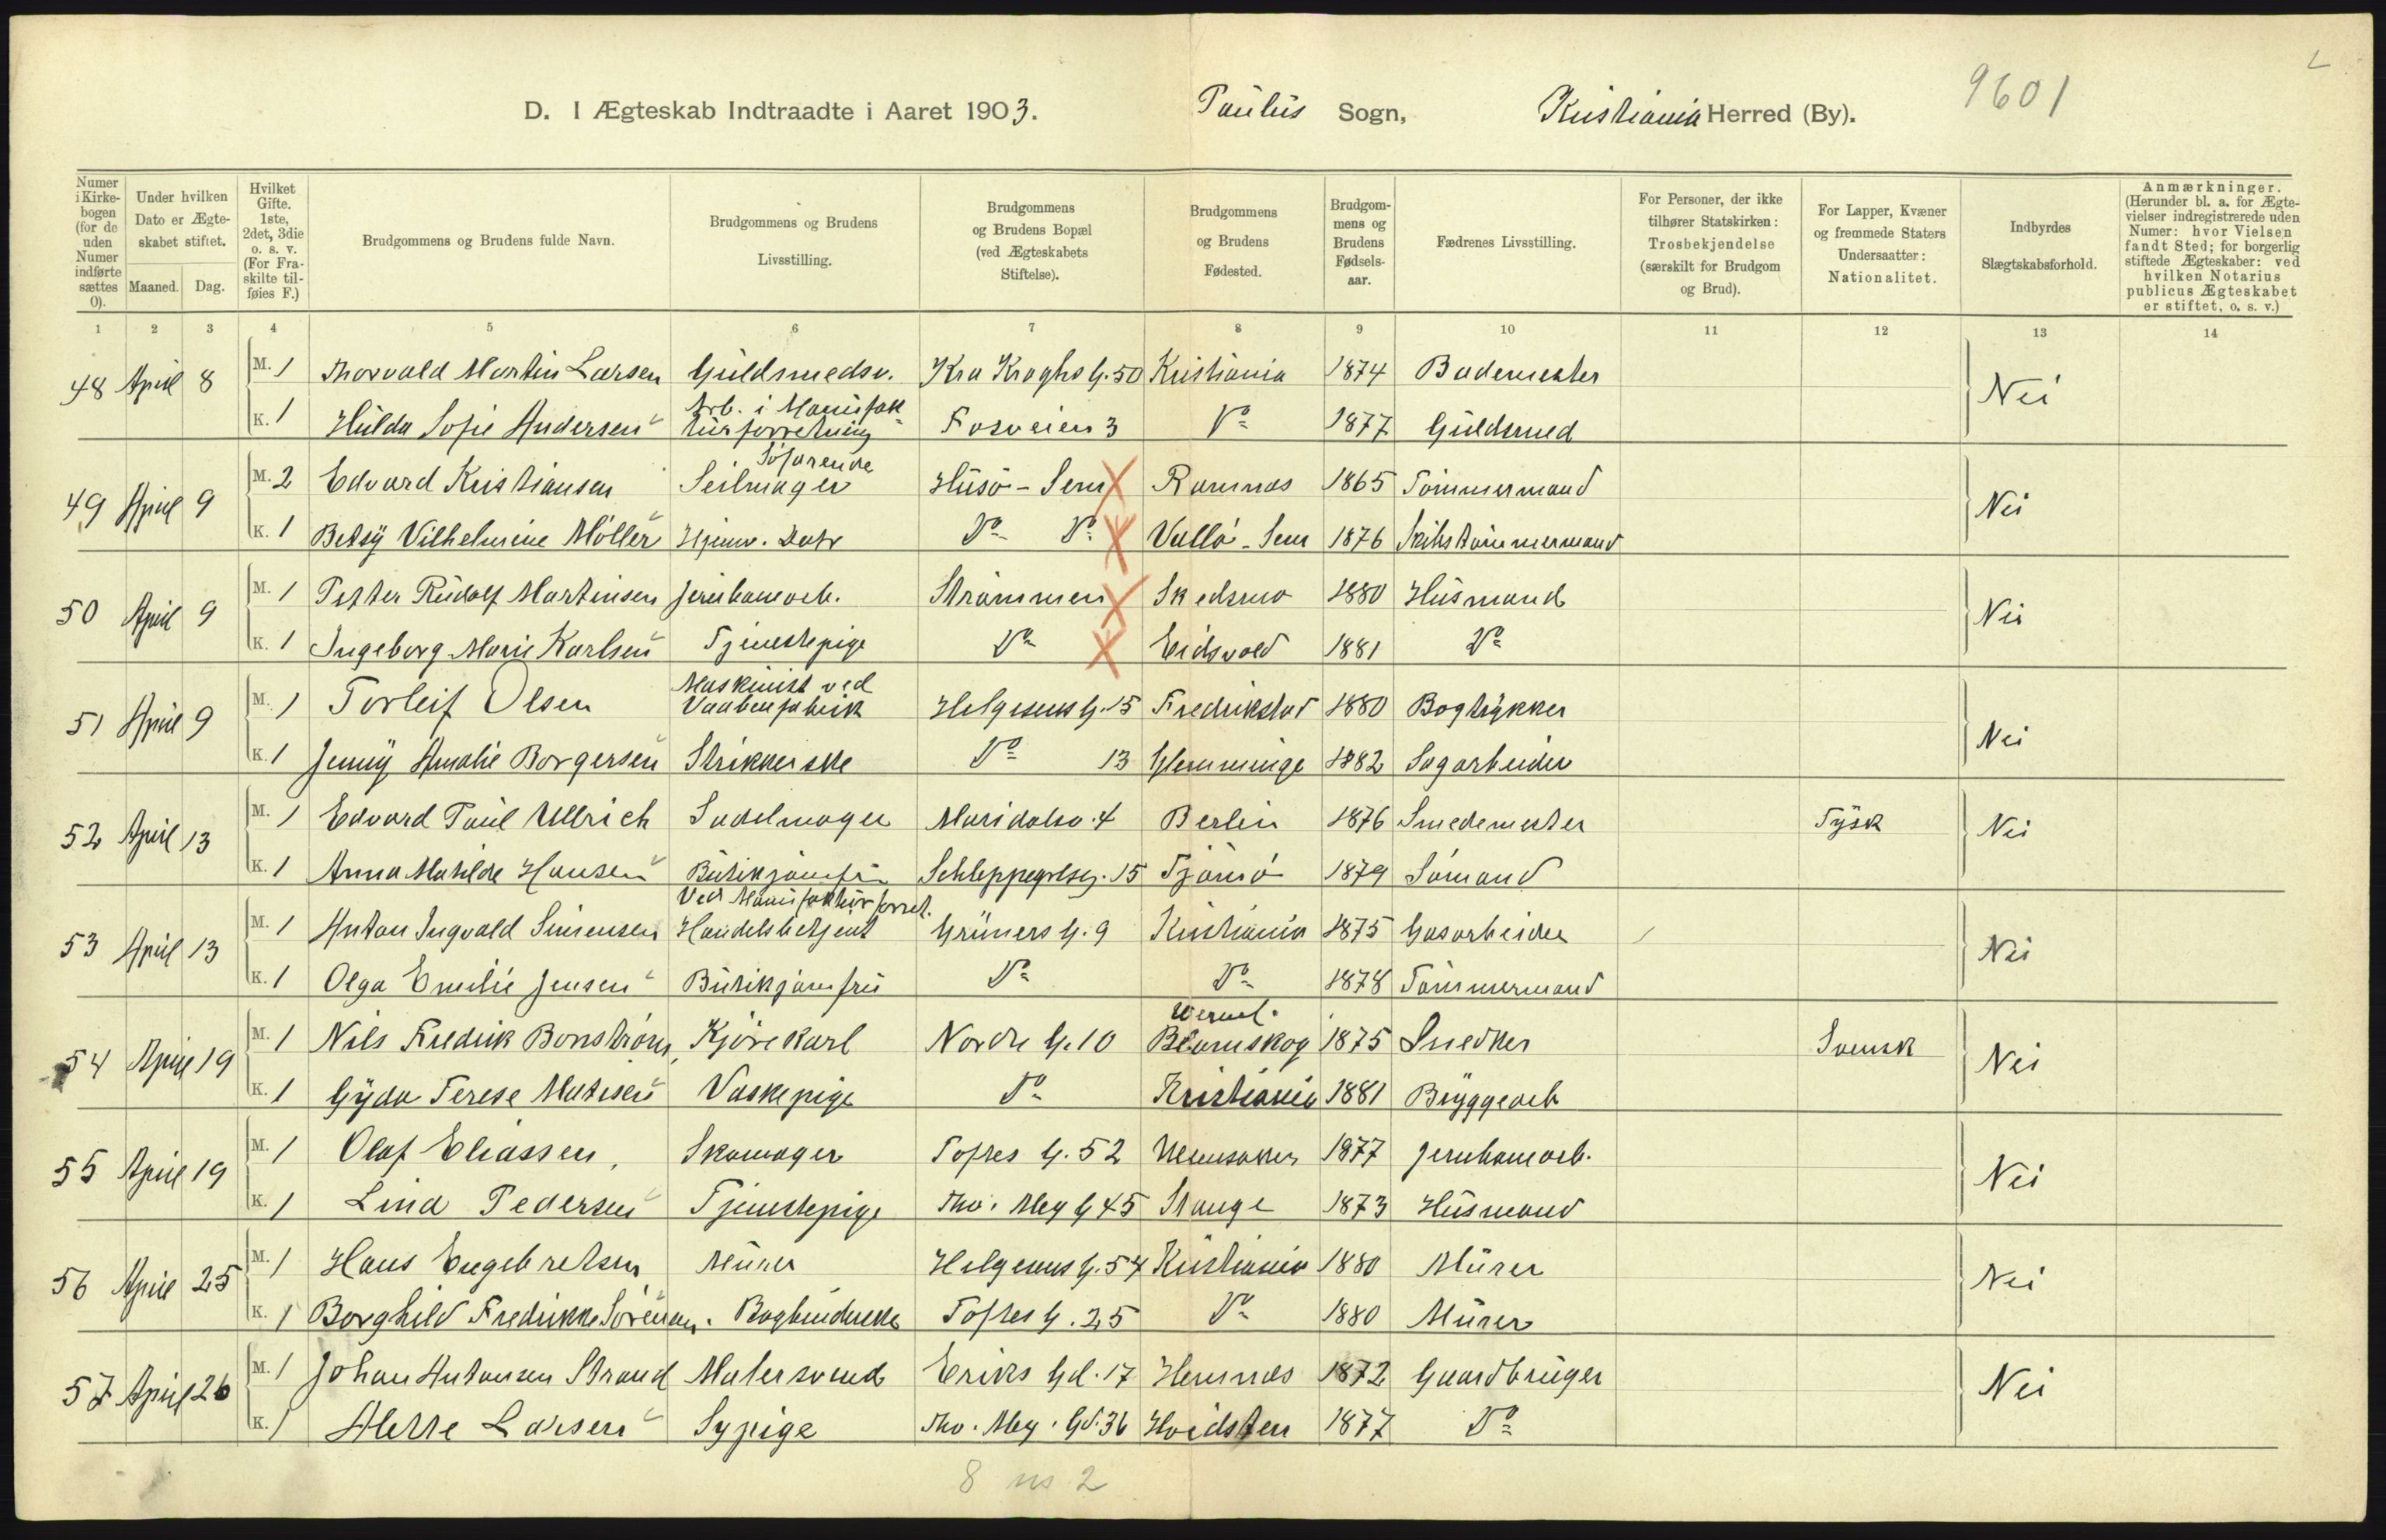 D. I Ægteskab Indtraadte i Aaret 1903. Paulus Sogn, Kristiania Herred (By). 9601
Numer i Kirkebogen (for de uden Numer indførte sættes 0).
Under hvilken Dato er Ægteskabet stiftet.
Maaned. Dag.
Hvilket Gifte. 1ste, 2det, 3die o. s. v. (For Fraskilte tilføies F.)
Brudgommens og Brudens fulde Navn.
Brudgommens og Brudens Livsstilling.
Brudgommens og Brudens Bopæl (ved Ægteskabets Stiftelse).
Brudgommens og Brudens Fødested.
Brudgommens og Brudens Fødselsaar.
Fædrenes Livsstilling.
For Personer, der ikke tilhører Statskirken: Trosbekjendelse (særskilt for Brudgom og Brud).
For Lapper, Kvæner og fremmede Staters Undersaatter: Nationalitet.
Indbyrdes Slægtskabsforhold.
Anmærkninger. (Herunder bl. a. for Ægtevielser indregistrerede uden Numer: hvor Vielsen fandt Sted; for borgerlig stiftede Ægteskaber: ved hvilken Notarius publicus Ægteskabet er stiftet, o. s. v.)
1 2 3 4 5 6 7 8 9 10 11 12 13 14
48 April 8 M. 1 Thorvald Martin Larsen Guldsmedsv. Kra Kroghs G. 50 Kristiania 1874 Bademester Nei
K. 1 Hulda Sofie Andersen Arb. i Manufakturforretning Fosveien 3 Do 1877 Guldsmed
49 April 9 M. 2 Edvard Kristiansen Søfarende Seilmager Husø - Sem Ramnæs 1865 Tømmermand Nei
K. 1 Betsy Vilhelmine Møller Hjemv. Datr Do Do Vallø - Sem 1876 Skibstømmermand
50 April 9 M. 1 Petter Rudolf Martinsen Jernbanearb. Strømmen Skedsmo 1880 Husmand Nei
K. 1 Ingeborg Marie Karlsen Tjenestepige Do Eidsvold 1881 Do
51 April 9 M. 1 Torleif Olsen Maskinist ved Vaabenfabrik Helgesens G. 15 Fredrikstad 1880 Bogtrykker Nei
K. 1 Jenny Amalie Borgersen Strikkerske Do 13 Glemminge 1882 Sagarbeider
52 April 13 M. 1 Edvard Paul Ullrich Sadelmager Maridalsv. 4 Berlin 1876 Smedemester Tysk Nei
K. 1 Anna Matilde Hansen Butikjomfru Schleppegrlsg. 15 Tjømø 1879 Sømand
53 April 13 M. 1 Anton Ingvald Simensen Ved Manufakturforret. Handelsbetjent Grüners G. 9 Kristiania 1875 Gasarbeider Nei
K. 1 Olga Emilie Jensen Butikjomfru Do Do 1878 Tømmermand
54 April 19 M. 1 Nils Fredrik Bonstrøm Kjørekarl Nordre G. 10 Werml. Blomskog 1875 Snedker Svensk Nei
K. 1 Gyda Terese Matisen Vaskepige Do Kristiania 1881 Bryggearb
55 April 19 M. 1 Olaf Eliassen, Skomager Toftes G. 52 Ullensaker 1877 Jernbanearb. Nei
K. 1 Lina Pedersen Tjenestepige Tho. Mey G 45 Stange 1873 Husmand
56 April 25 M. 1 Hans Engebretsen Murer Helgesens G. 54 Kristiania 1880 Murer Nei
K. 1 Borghild Fredrikke Sørensen. Bogbinderske Toftes G. 25 Do 1880 Murer
57 April 26 M. 1 Johan Antonsen Strand Malersvend Eriks Gd. 17 Hemnæs 1872 Gaardbruger Nei
K. 1 Alette Larsen Sypige Tho. Mey. Gd. 36 Hvidsten 1877 Do
8 2